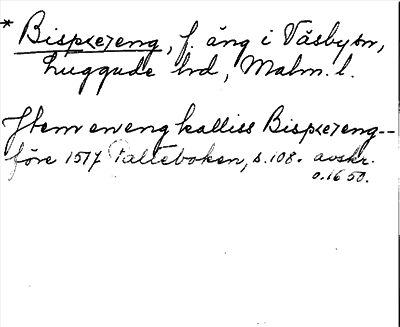 * Bisp<e>eng, f. äng i Väsby sn,
Luggude hd, Malm. l.
Item en eng kalliss Bisp<e>eng--
före 1517 Palteboken, s. 108. avskr.
o. 1650.